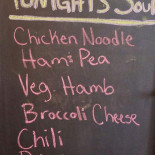 TONIGHTS Sou
Chicken Noodle
Ham & Pea
Veg. Hamb
Broccoli Cheese
Chili